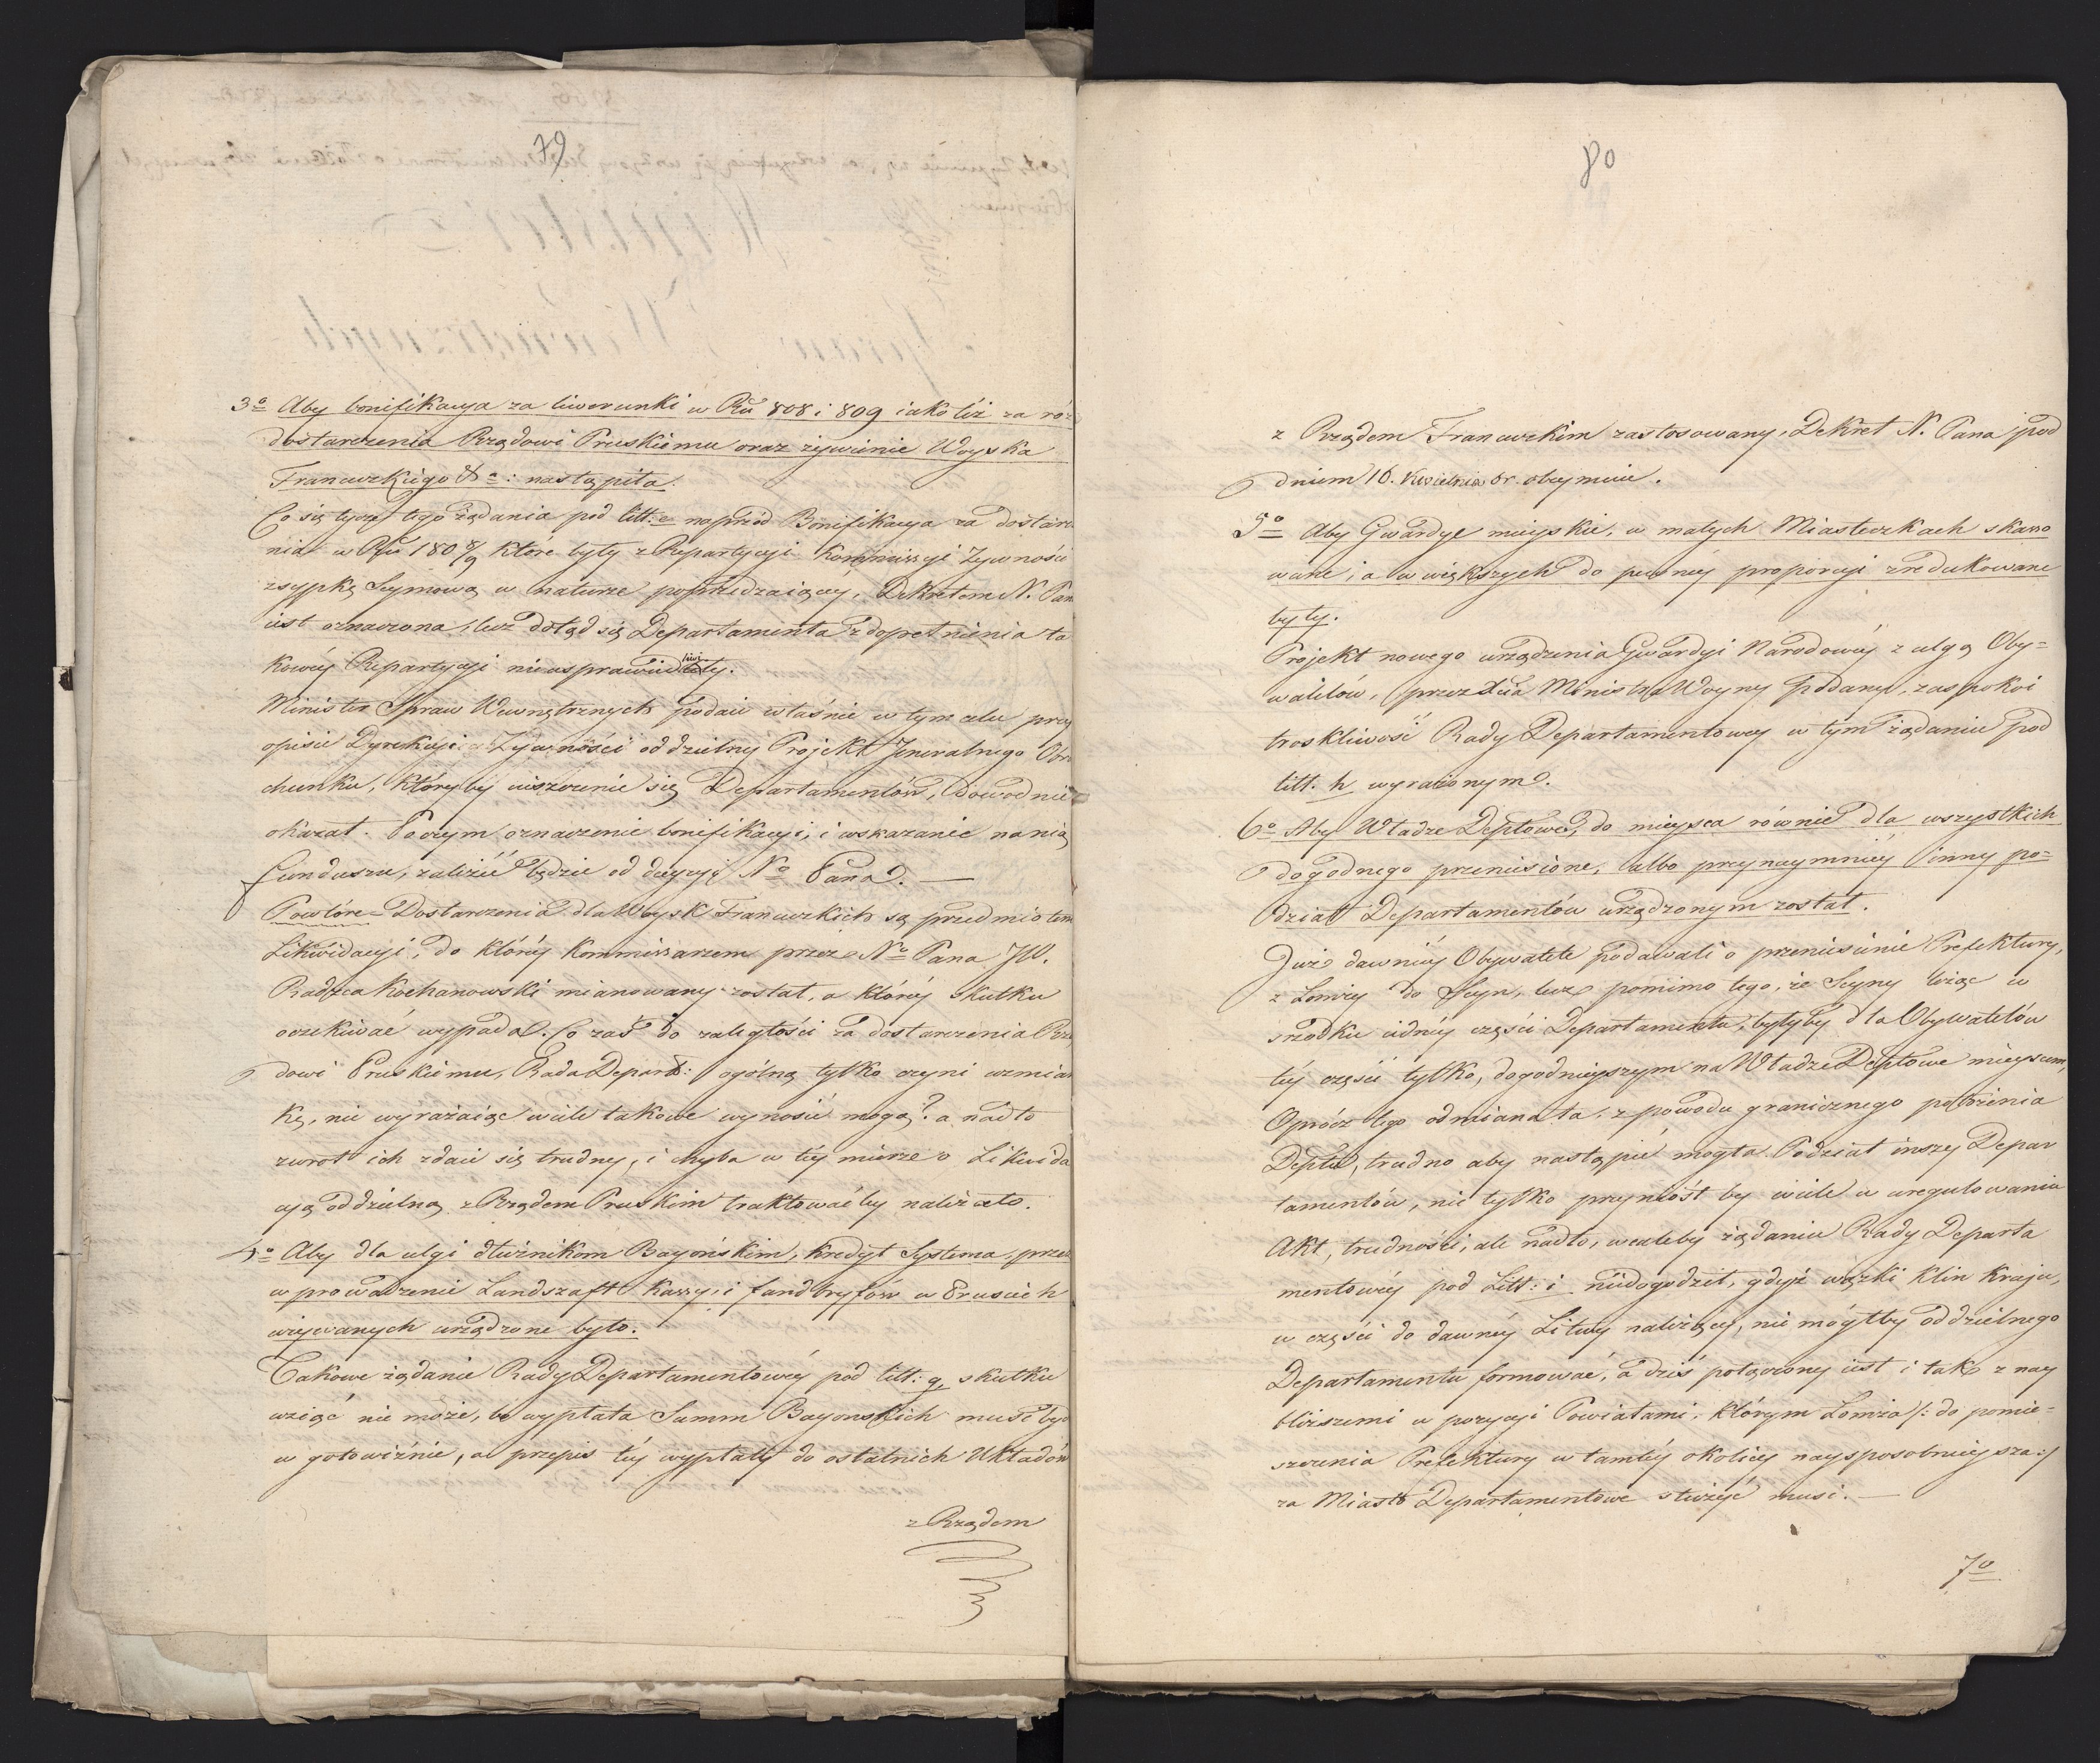 79
3o Aby bonifikacya za liwerunki w Rŭ 808 i 809 iako też za ró-
dostarczenia Rządowi Pruskiemu oraz żywienie Woyska
Francuzkiego &a: nastąpiła.
Co się tycze tego żądania pod litt: e naprzód Bonifikacya za dostarc
nia w Rŭ 1808/9 które były z Repartycyi Kommissyi Żywności
zsypkę Seymową w naturze poprzedzaiącey, Dekretem N. Pan
iest oznaczona, lecz dotąd się Departamenta z dopełnienia ta
kowéy Repartycyi nieusprawiedliwiły.
Minister Spraw Wewnętrznych podaie właśnie w tym celu przy
opisie Dyrekcyi Żywności oddzielny Projekt Jeneralnego Obra
chunku, któryby uiszczenie się Departamentów, dowodnie
okazał. Poczym oznaczenie bonifikacyi, i wskazanie na nią
funduszu, zależéć będzie od decyzyi No Pana. —
Powtóre - Dostarczenia dla Woysk Francuzkich są przedmiotem
Likwidacyi, do któréy Kommissarzem przez No Pana JW.
Radzca Kochanowski mianowany został, a któréy skutku
oczekiwać wypada. Co zaś do zaległości za dostarczenia Rzą
dowi Pruskiemu, Rada Depart: ogólną tylko czyni wzmian
kę, nie wyrażaiąc wiele takowe wynosić mogą? a nadto
zwrot ich zdaie się trudny, i chyba w téy mierze o Likwida
cyą oddzielną z Rządem Pruskim traktowaćby należało.
4o Aby dla ulgi dłużnikom Bayońskim, kredyt Systema, przez
wprowadzenie Landszaft Kassy, i fandbryfów w Prusiech
używanych urządzone było.
Takowe żądanie Rady Departamentowéy pod litt: g, skutku
wziąć nie może, bo wypłata Summ Bayońskich musi być
w gotowiźnie, a przepis téy wypłaty do ostatnich Układów
z Rządem
80
z Rządem Francuzkim zastosowany, Dekret N. Pana pod
dniem 16. Kwietnia br. obeymuie.
5o Aby Gwardye mieyskie, w małych Miasteczkach skasso
wane, a w większych do pewnéy proporcyi zredukowane
były.
Projekt nowego urządzenia Gwardyi Narodowéy z ulgą Oby-
watelów, przez Ministra Woyny podany, zaspokoi
troskliwość Rady Departamentowey w tym żądaniu pod
litt. h wyrażonym.
6o Aby Władze Deptowe, do mieysca równie dla wszystkich
dogodnego przeniesione, albo przynaymniéy inny po-
dział Departamentów urządzonym został.
Już dawniéy Obywatele podawali o przeniesienie Prefektury,
z Łomży do Seyn, lecz pomimo tego, że Seyny leżąc w
srzodku iednéy części Departamentu, byłyby dla Obywatelów
téy części tylko, dogodnieyszym na Władze Deptowe mieyscem,
Oprócz tego odmiana ta, z powodu granicznego położenia
Deptu, trudno aby nastąpić mogła. Podział inszy Depar
tamentów, nie tylko przyniósłby wiele w uregulowaniu
Akt, trudności, ale nadto, wcaleby żądaniu Rady Departa
mentowéy pod Litt: i niedogodził, gdyż wązki klin kraju,
w części do dawnéy Litwy należący, nie mógłby oddzielnego
Departamentu formować, a dziś połączony iest i tak z nay
bliższemi w pozycyi Powiatami, którym Łomża /: do pomie-
szczenia Prefektury w tamtéy okolicy naysposobnieysza :/
za Miasto Departamentowe służyć musi. —
7o